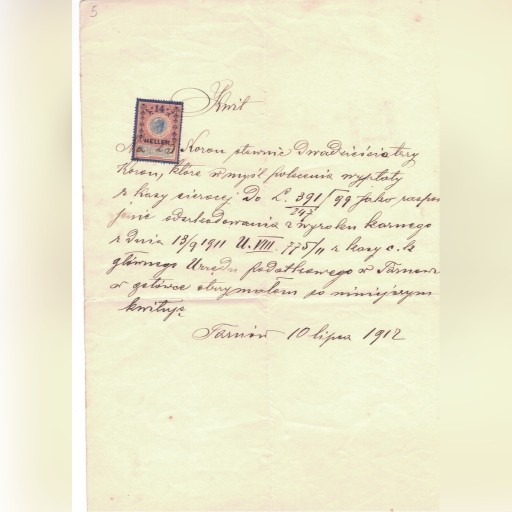 5
Kwit
14
HELLER
Koron słownie dwadzieścia trzy
Koron, które w myśl polecenia wypłaty
z kasy sierocej do L. 391/99 jako
297
odszkodowania z wyroku karnego
z dnia 13/9 1911 U. VIII. 775/11 z kasy c. k.
głównego Urzędu podatkowego w Tarnowie
w gotówce otrzymałem co niniejszym
kwituję
Tarnów 10 lipca 1912